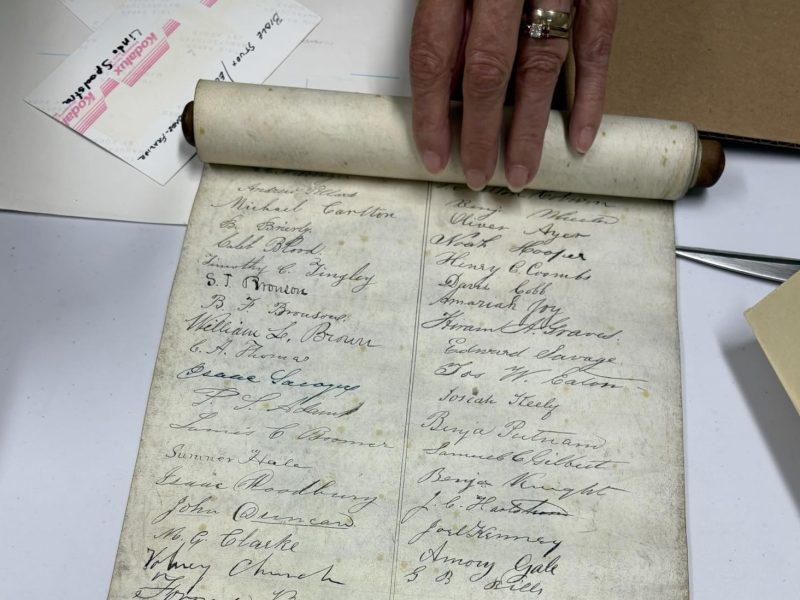 Kodalux
Linda Spoolstra
Kodalux
Michael Carlton
B. Brierly
Caleb Blood
Timothy C. Tingley
S. T. Bronson
B. F. Bronson
William L. Brown
C. A. Thomas
Isaac Savage
P. S. Adams
James C. Bronner
Sumner Hale
Isaac Woodbury
John Duncan
M. G. Clarke
Volney Church
Benj. Wheeler
Oliver Ayer
Noah Hooper
Henry C. Coombs
David Cobb
Amariah Joy
Hiram A. Graves.
Edward Savage
Jos. W. Eaton
Josiah Keely
Benja Putnam
Samuel C. Gilbert
Benja Knight
J. C.
Joel Kenney
Amory Gale
S B